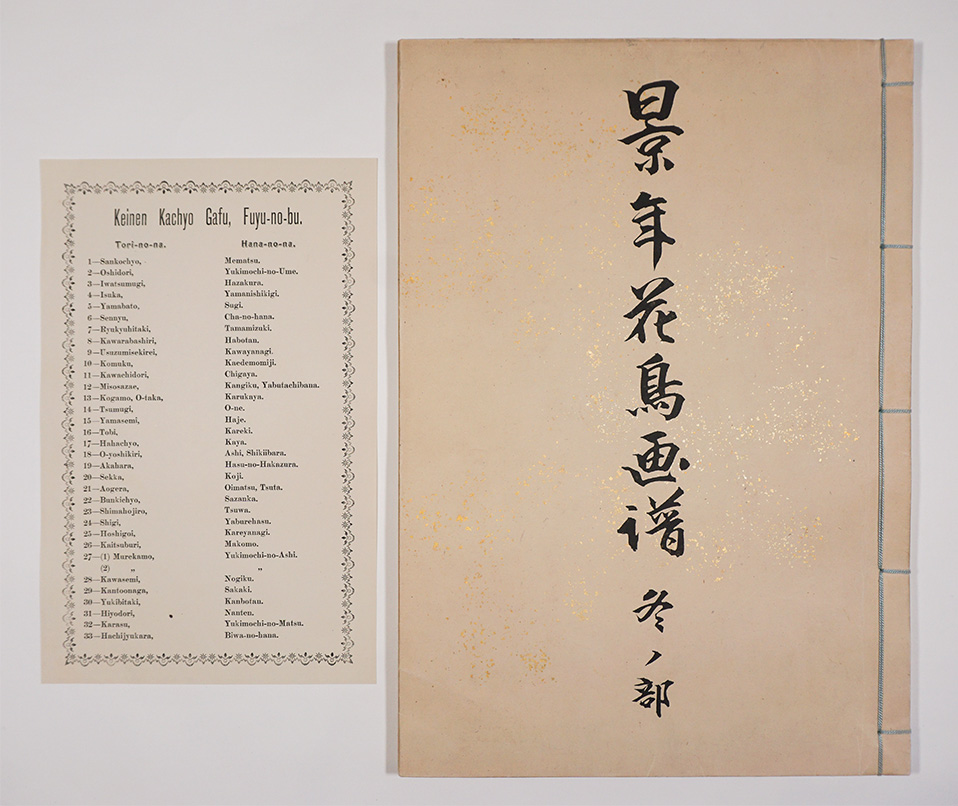 Keinen Kachyo Gafu, Fuyu-no-bu.
Tori-no-na. Hana-no-na.
1—Sankochyo, Mematsu.
2—Oshidori, Yukimochi-no-Ume.
3—Iwatsumugi, Hazakura.
4—Isuka, Yamanishikigi.
5—Yamabato, Sugi.
6—Sennyu, Cha-no-hana.
7—Ryukyuhitaki, Tamamizuki.
8—Kawarabashiri, Habotan.
9—Usuzumisekirei, Kawayanagi.
10—Komuku, Kaedemomiji.
11—Kawachidori, Chigaya.
12—Misosazae, Kangiku, Yabutachibana.
13—Kogamo, O-taka, Karukaya.
14—Tsumugi, O-ne.
15—Yamasemi, Haje.
16—Tobi, Kareki.
17—Hahachyo, Kaya.
18—O-yoshikiri, Ashi, Shikiibara.
19—Akahara, Hasu-no-Hakazura.
20—Sekka, Koji.
21—Aogera, Oimatsu, Tsuta.
22—Bunkichyo, Sazanka.
23—Shimahojiro, Tsuwa.
24—Shigi, Yaburehasu.
25—Hoshigoi, Kareyanagi.
26—Kaitsuburi, Makomo.
27—(1) Murekamo, Yukimochi-no-Ashi.
(2) „ „
28—Kawasemi, Nogiku.
29—Kantoonaga, Sakaki.
30—Yukihitaki, Kanbotan.
31—Hiyodori, Nanten.
32—Karasu, Yukimochi-no-Matsu.
33—Hachijyukara, Biwa-no-hana.
景年花鳥画譜 冬ノ部